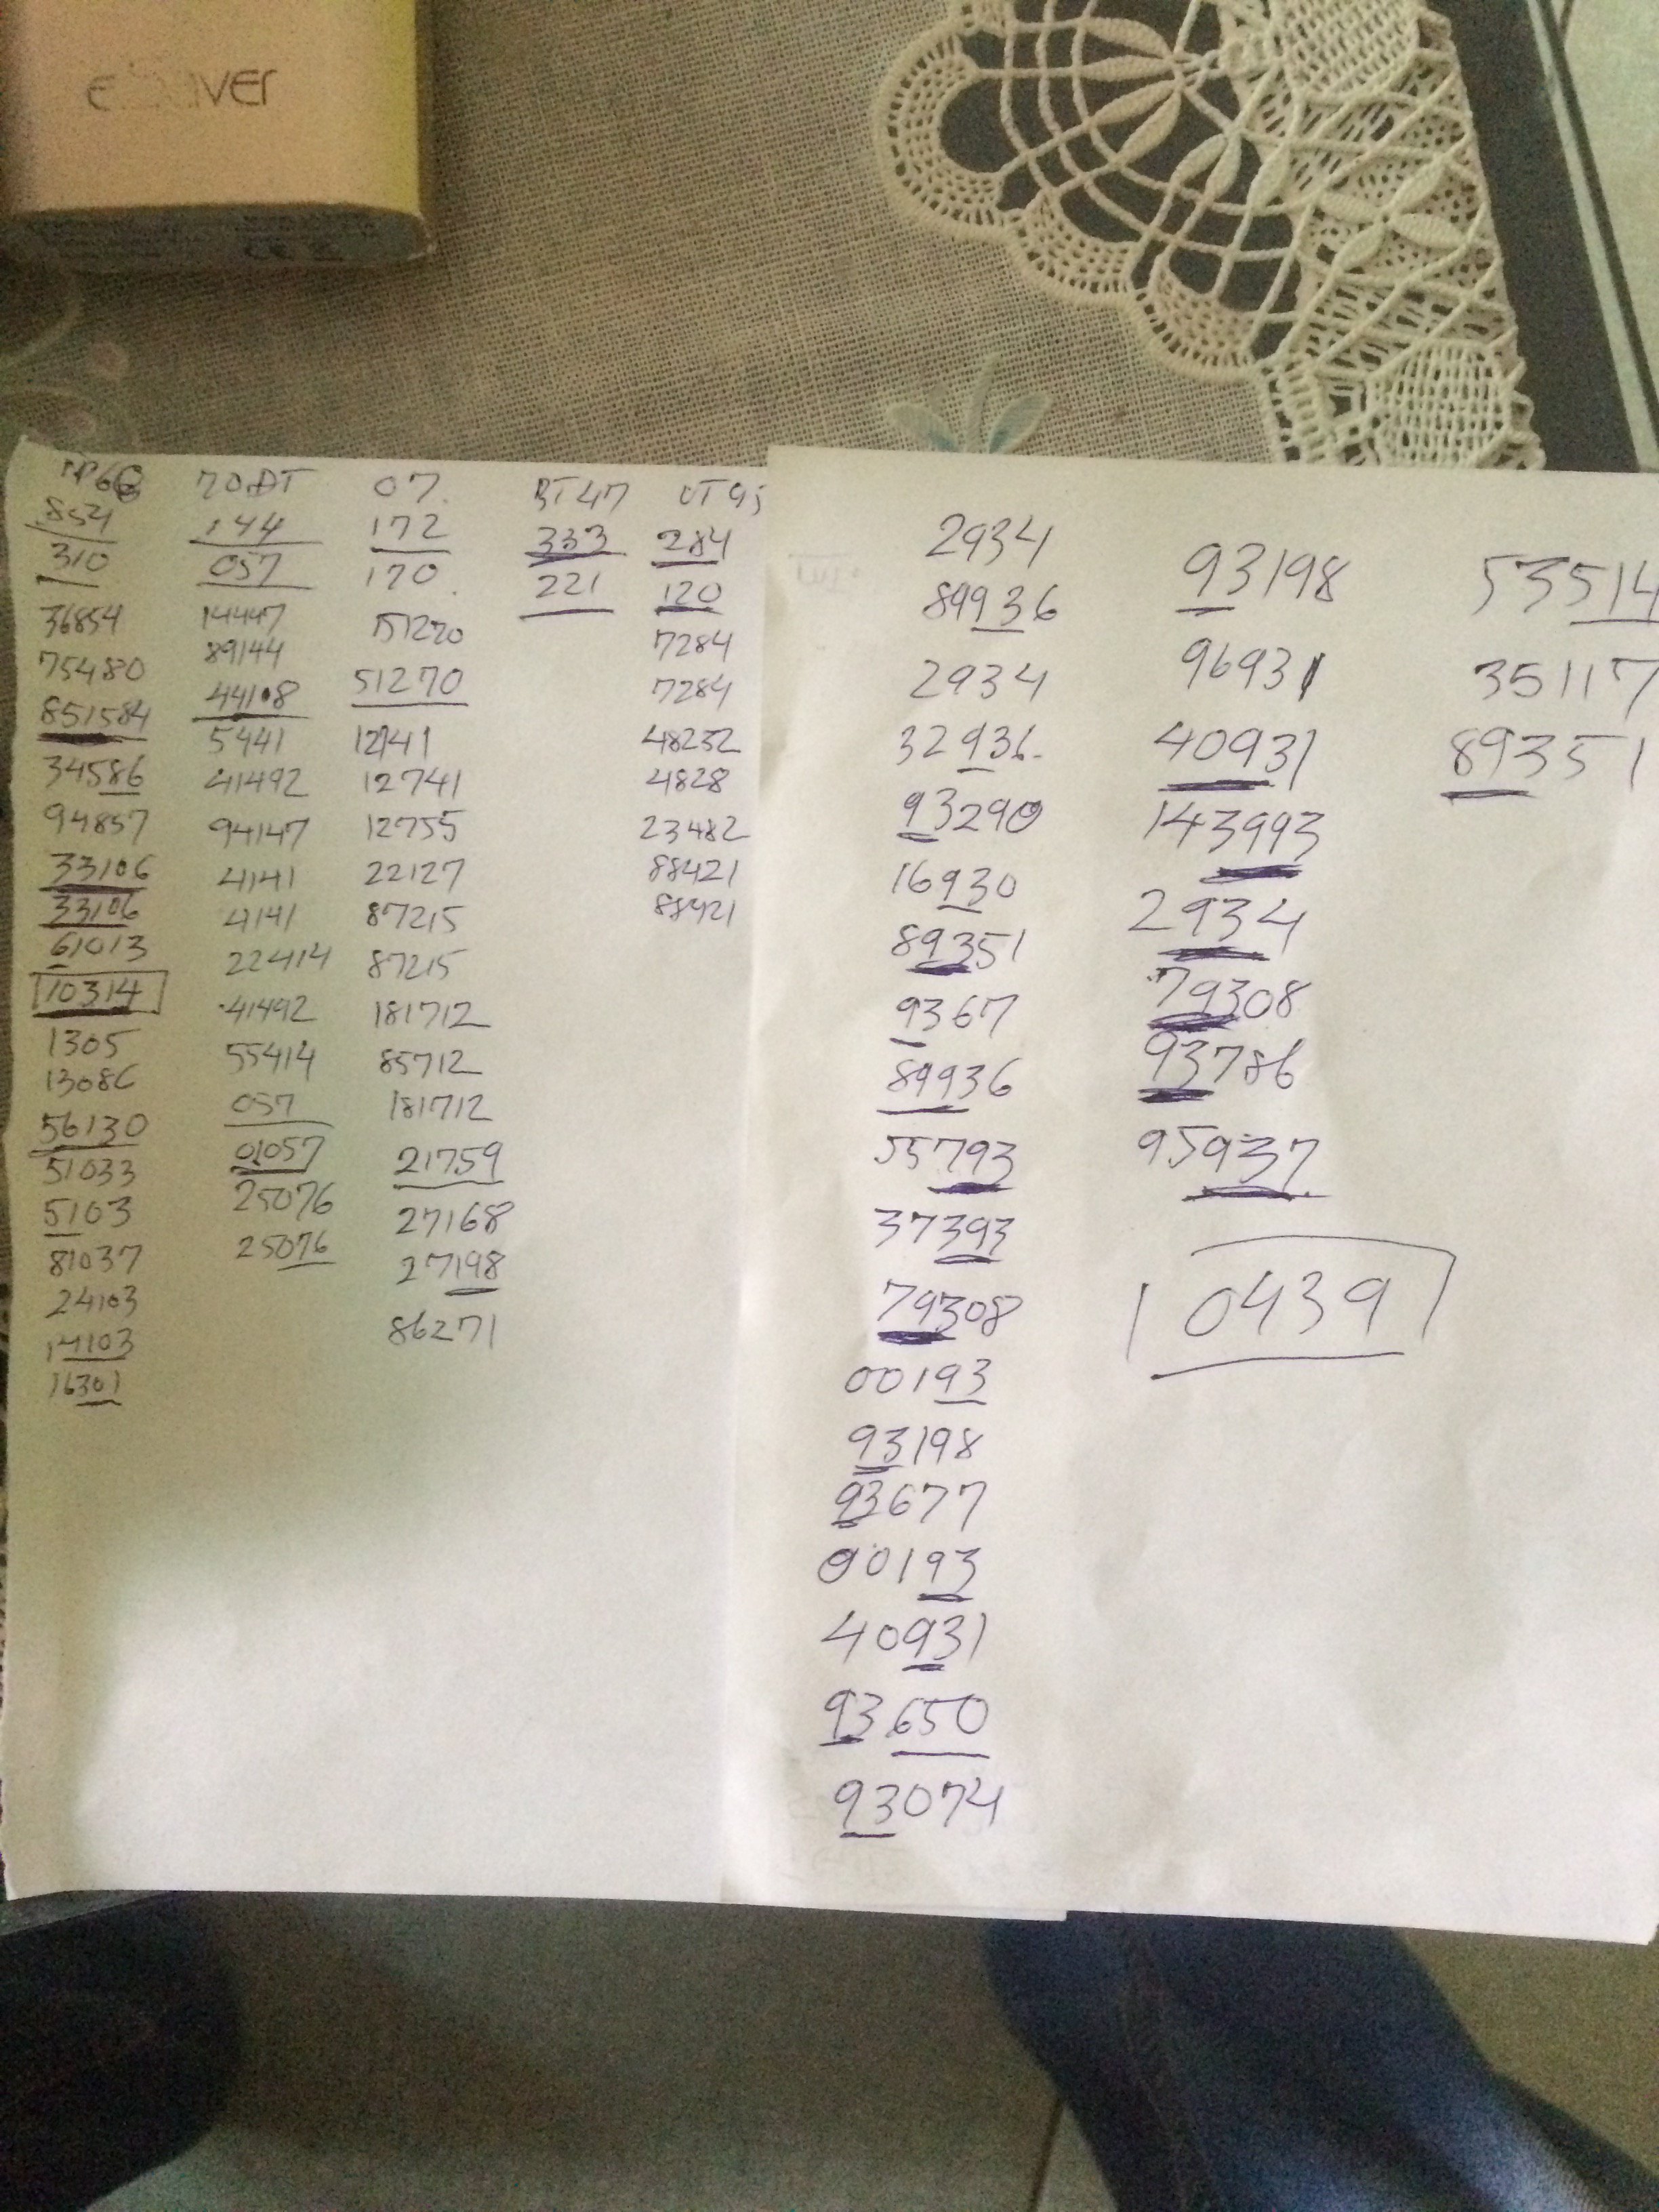 144
07.
172
BT47
333
284
310
057
170.
221
120
36854
75480
851584
34586
94857
33106
33106
61013
10314
1305
13086
56130
51033
5103
81037
24103
14103
16301
14447
89144
44108
5441
41492
94147
4141
4141
22414
41492
55414
057
01057
25076
25076
51270
12741
12755
22127
87215
87215
181712
85712
181712
21759
27168
27198
86271
7284
7284
48232
4828
23482
88421
88421
2934
89936
2934
32936
93290
16930
89351
9367
89936
55793
37393
79308
00193
93198
93677
00193
40931
93650
93074
93198
96931
40931
143993
2934
79308
93786
95937
0439
53514
35117
89351